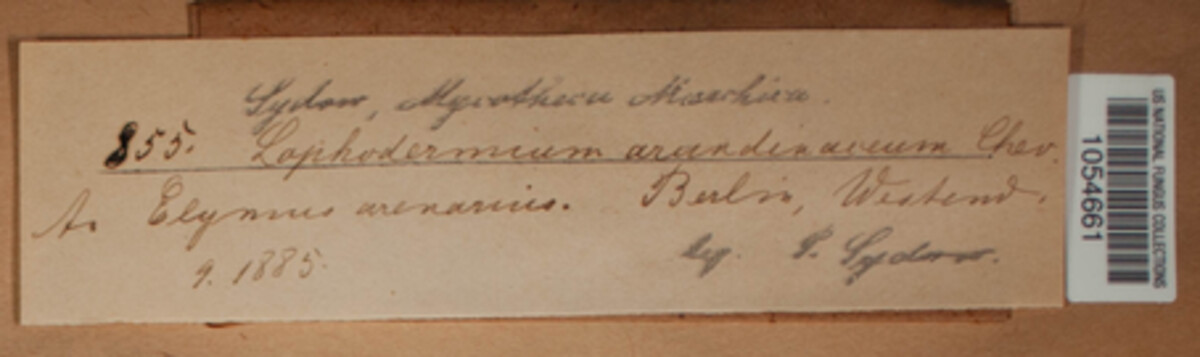 Sydow, Mycotheca Marchica.
855. Lophodermium arundinaceum Chev.
A. Elymus arenarius. Berlin, Westend.
9. 1885. leg. P. Sydow.
US NATIONAL FUNGUS COLLECTIONS
1054661